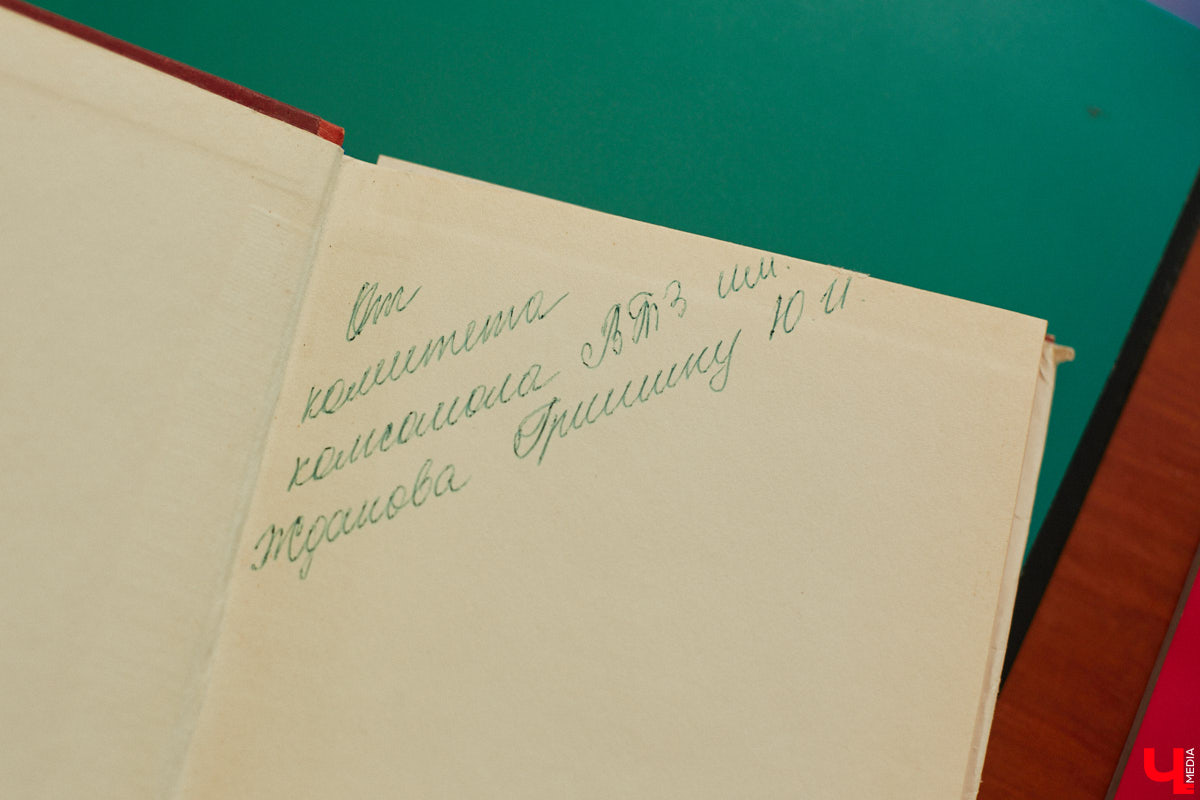 От
комитета
комсомола ВТЗ им.
Жданова Гришину Ю. И.
Ч MEDIA